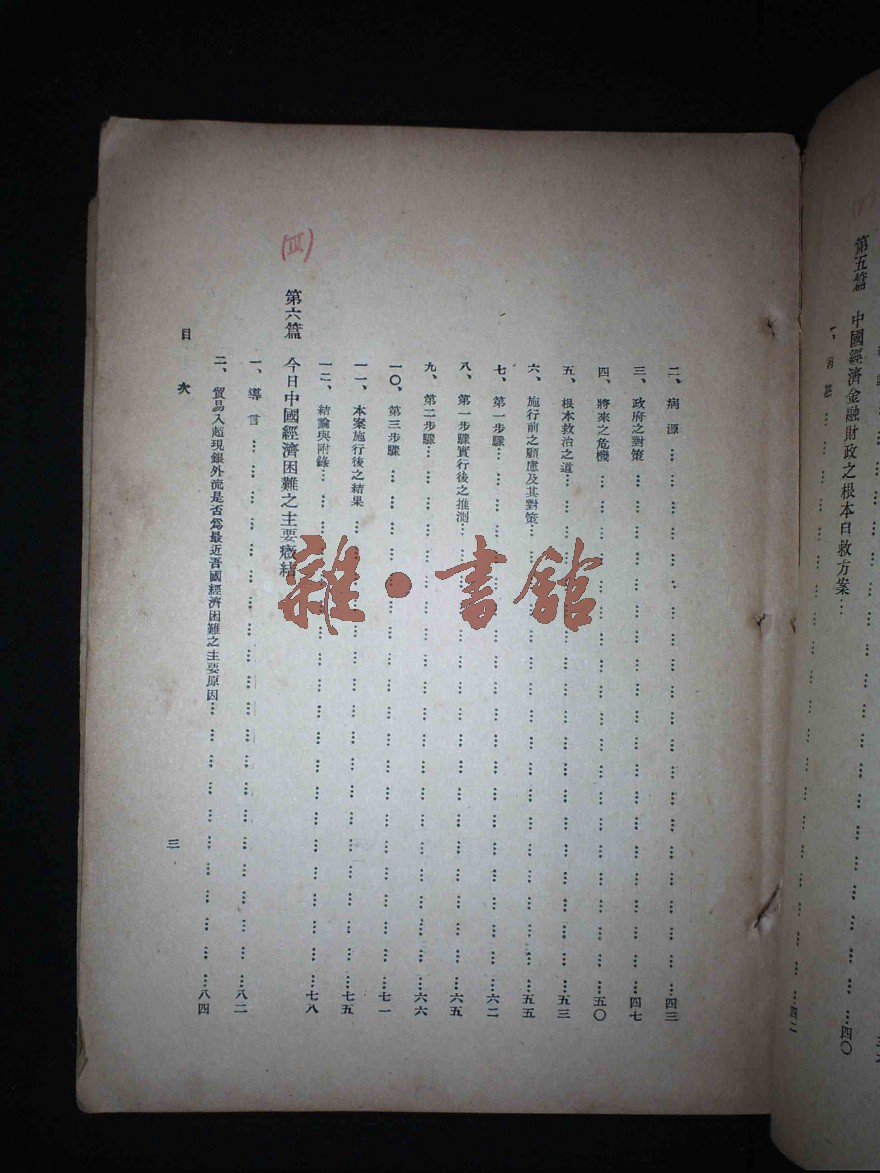 第五篇 中國經濟金融財政之根本自救方案……四〇
一、……四二
二、病源……四三
三、政府之對策……四七
四、將來之危機……五〇
五、根本救治之道……五三
六、施行前之顧慮及其對策……五五
七、第一步驟……六二
八、第一步驟實行後之推測……六五
九、第二步驟……六六
一〇、第三步驟……七一
一一、本案施行後之結果……七五
一二、結論與附錄……七八
(III)
第六篇 今日中國經濟困難之主要癥結
一、導言……八二
二、貿易入超現銀外流是否爲最近吾國經濟困難之主要原因……八四
目次
三
雜·書館